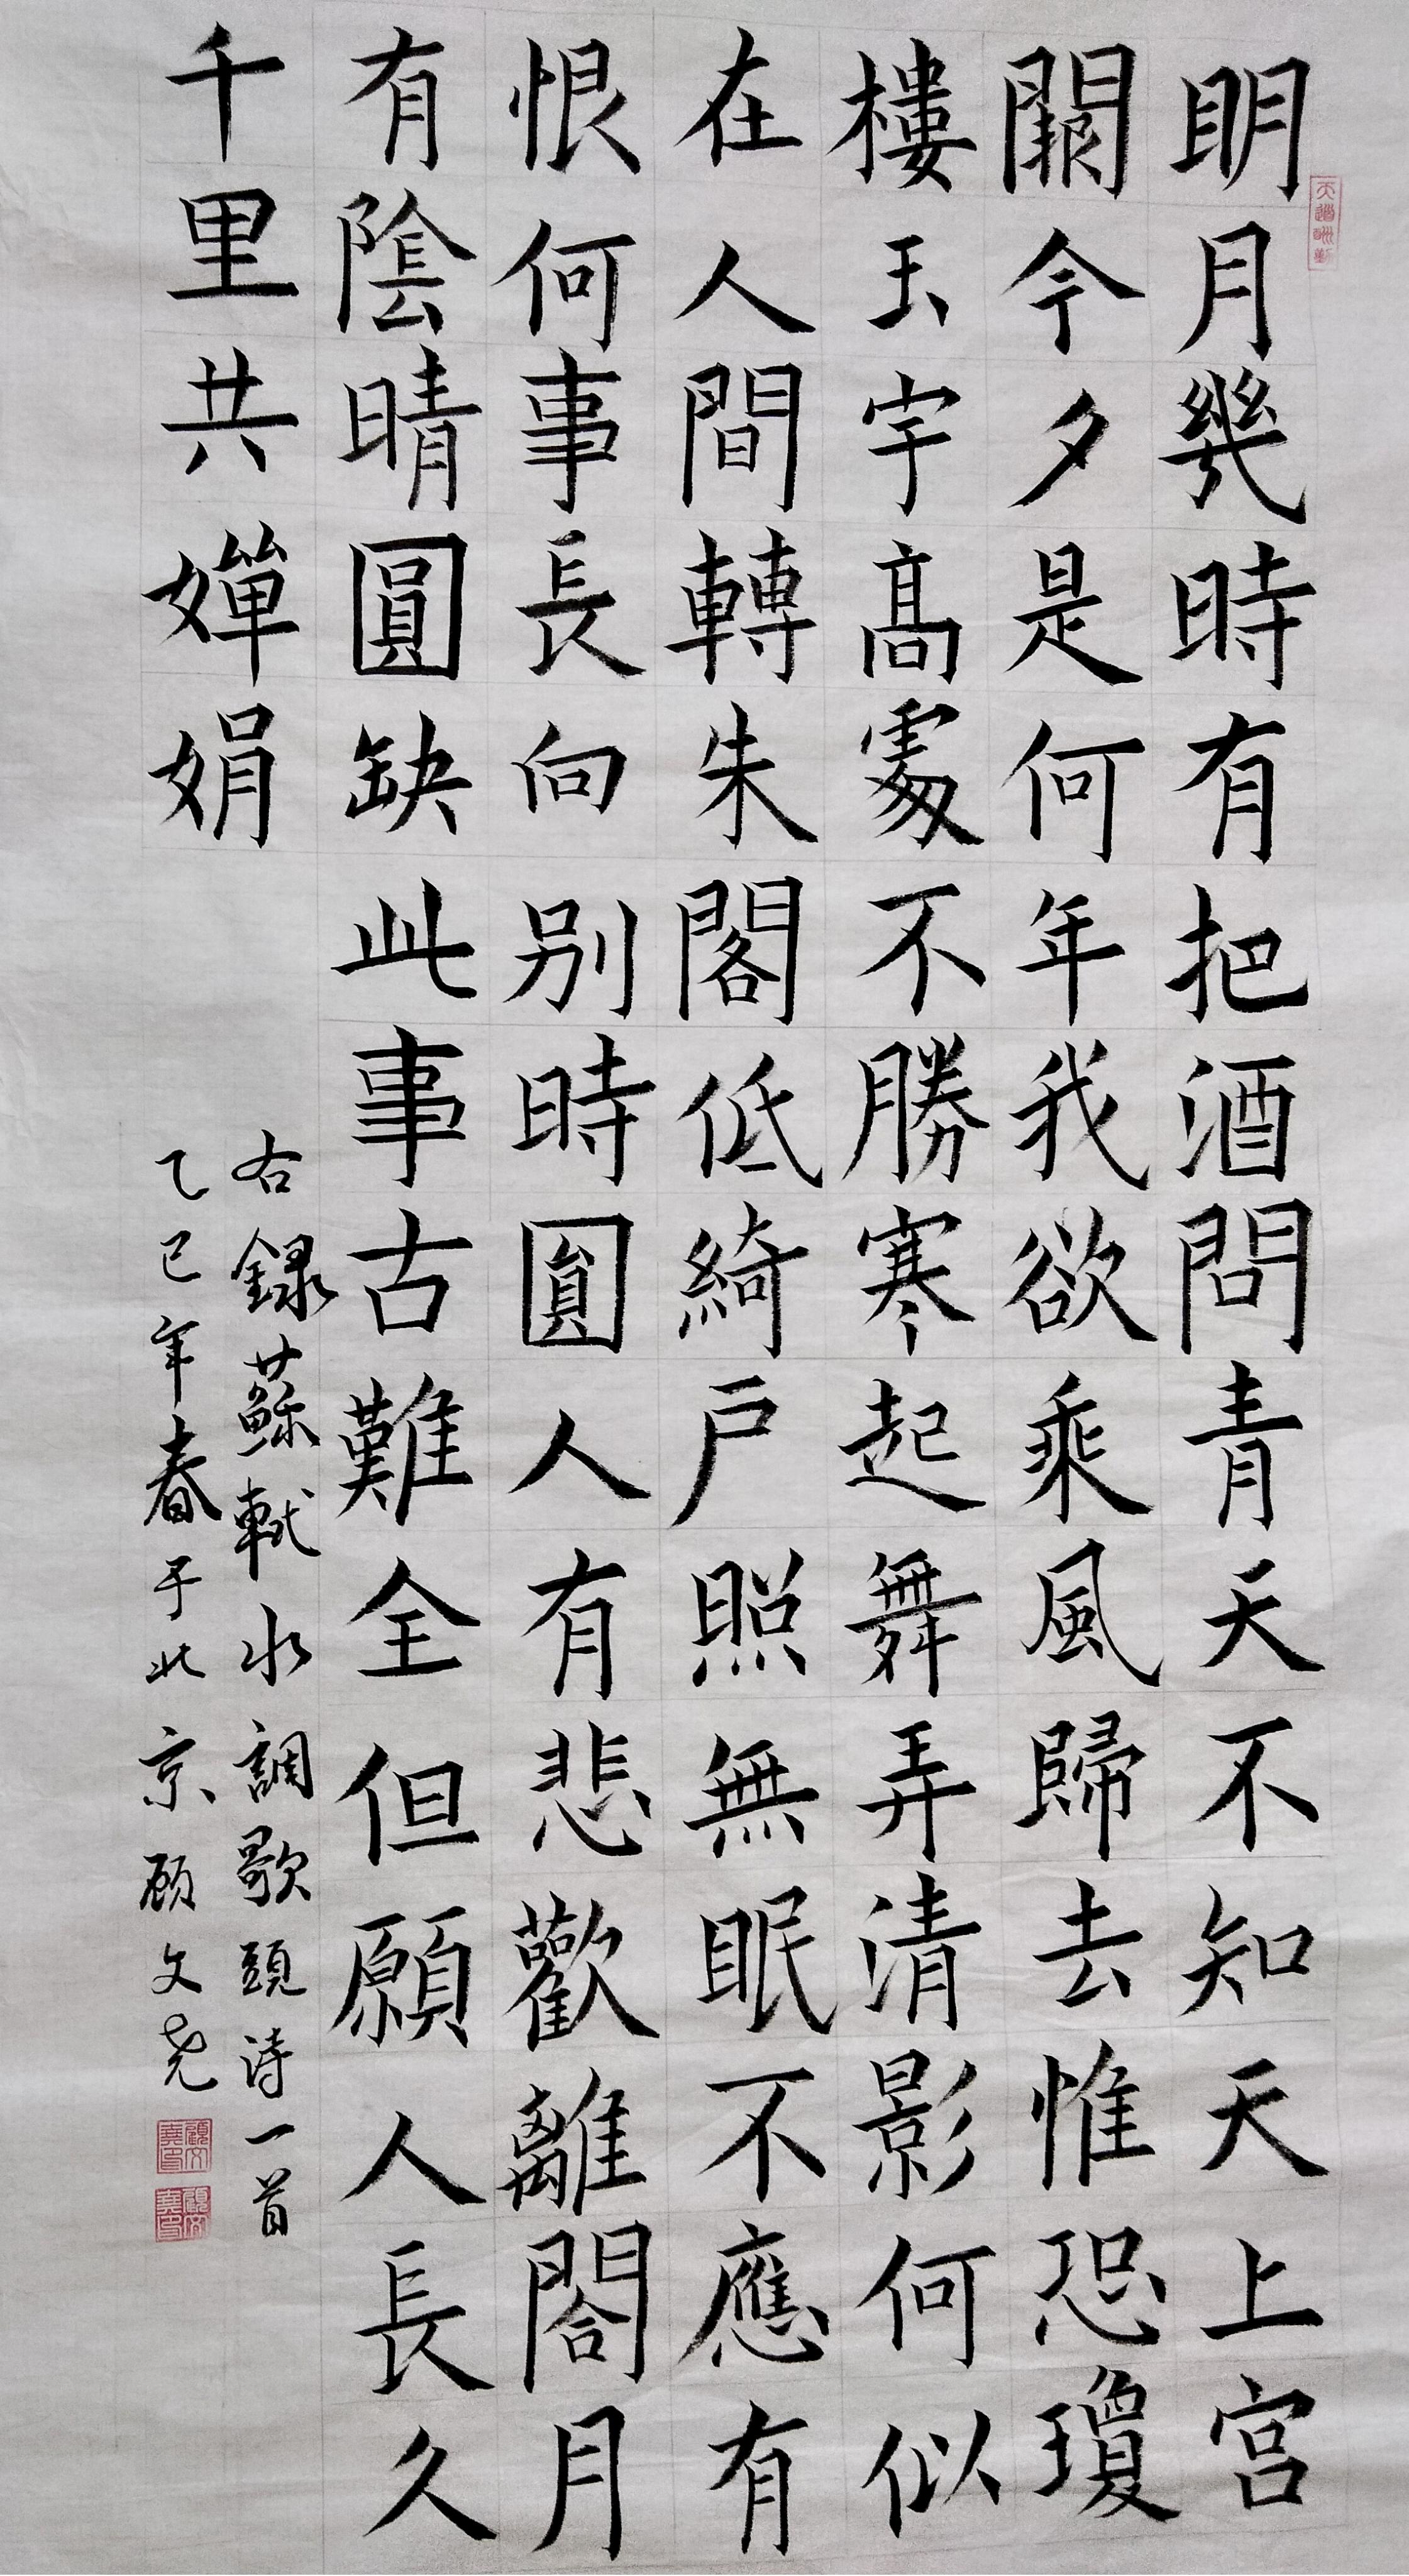 天道酬勤
明月幾時有把酒問青天不知天上宫
闕今夕是何年我欲乘風歸去惟恐瓊
樓玉宇髙處不勝寒起舞弄清影何似
在人間轉朱閣低綺户照無眠不應有
恨何事長向别時圓人有悲歡離閤月
有陰晴圓缺此事古難全但願人長久
千里共嬋娟
右録蘇軾水調歌頭诗一首
乙巳年春于北京顾文尧
顧文堯印
顧文堯印